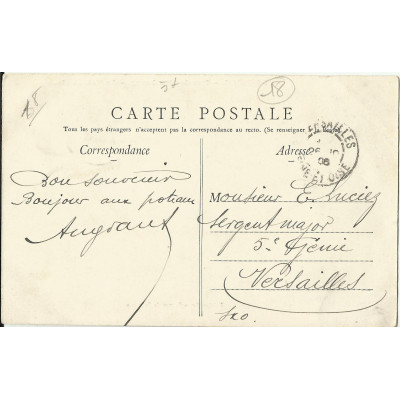 18
18
CARTE POSTALE
Tous les pays étrangers n'acceptent pas la correspondance au recto. (Se renseigner à la
Correspondance
Adresse
VERSAILLES
06
ET OISE
Bon souvenir
Bonjour aux poteaux
Monsieur E.
Sergent major
5e Génie
Versailles